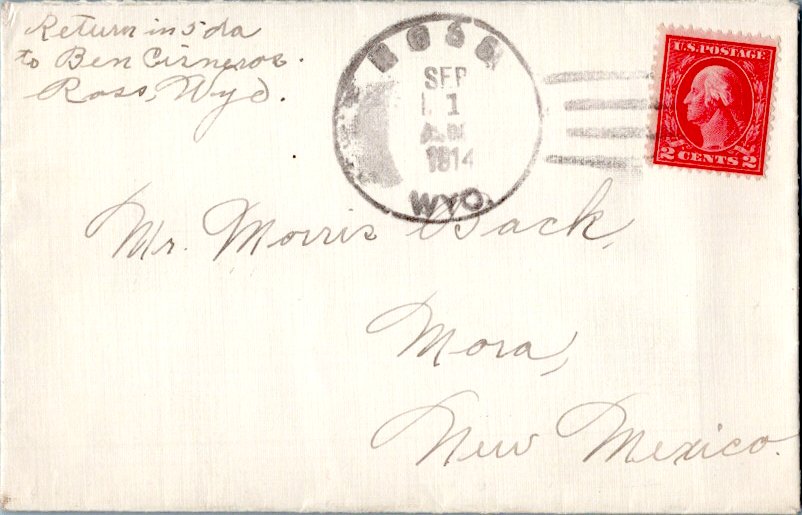 Return in 5 da
to Ben Cisneros.
Ross, Wyo.
ROSS
SEP
1
A.M.
1914
WYO.
U.S. POSTAGE
2 CENTS 2
Mr. Morris Back,
Mora,
New Mexico.